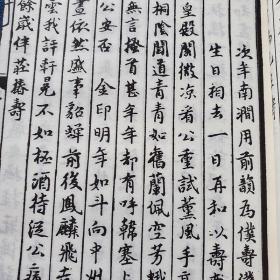 次年南澗用前韻為僕壽
生日相去一日再和以壽
皇殿閣微凉看公重試薰風手
桐陰閣道青青如舊蘭佩空芳
無言搔首甚年年却有呼韓塞上
公安否 金印明年如斗向中州
晝依然盛事貂蟬前後鳳麟飛走
雲我評軒冕不如杯酒待從公痛
餘歲伴莊椿壽